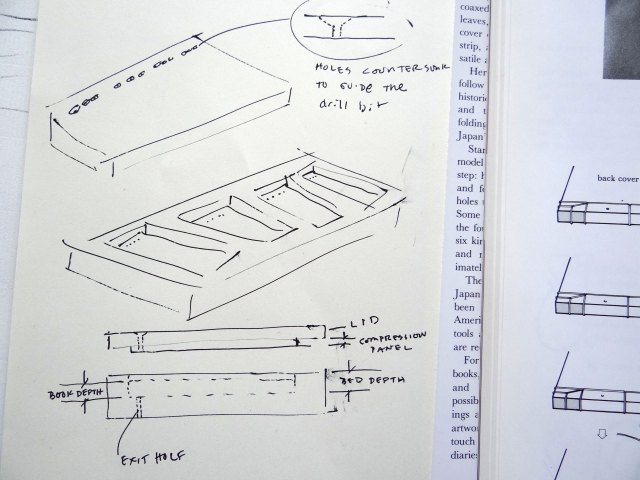 HOLES COUNTERSUNK
TO GUIDE THE
drill bit
LID
COMPRESSION
PANEL
BOOK DEPTH
BED DEPTH
EXIT HOLE
coaxed
leaves,
cover
strip, a
satile a
Her
follow
historic
and t
folding
Japan
Star
model
step: h
and fo
holes
Some
the fou
six kin
and
imatel
The
Japan
been
Ameri
tools a
are re
For
books.
and
possib
ings a
artwo
touch
diarie
back cover